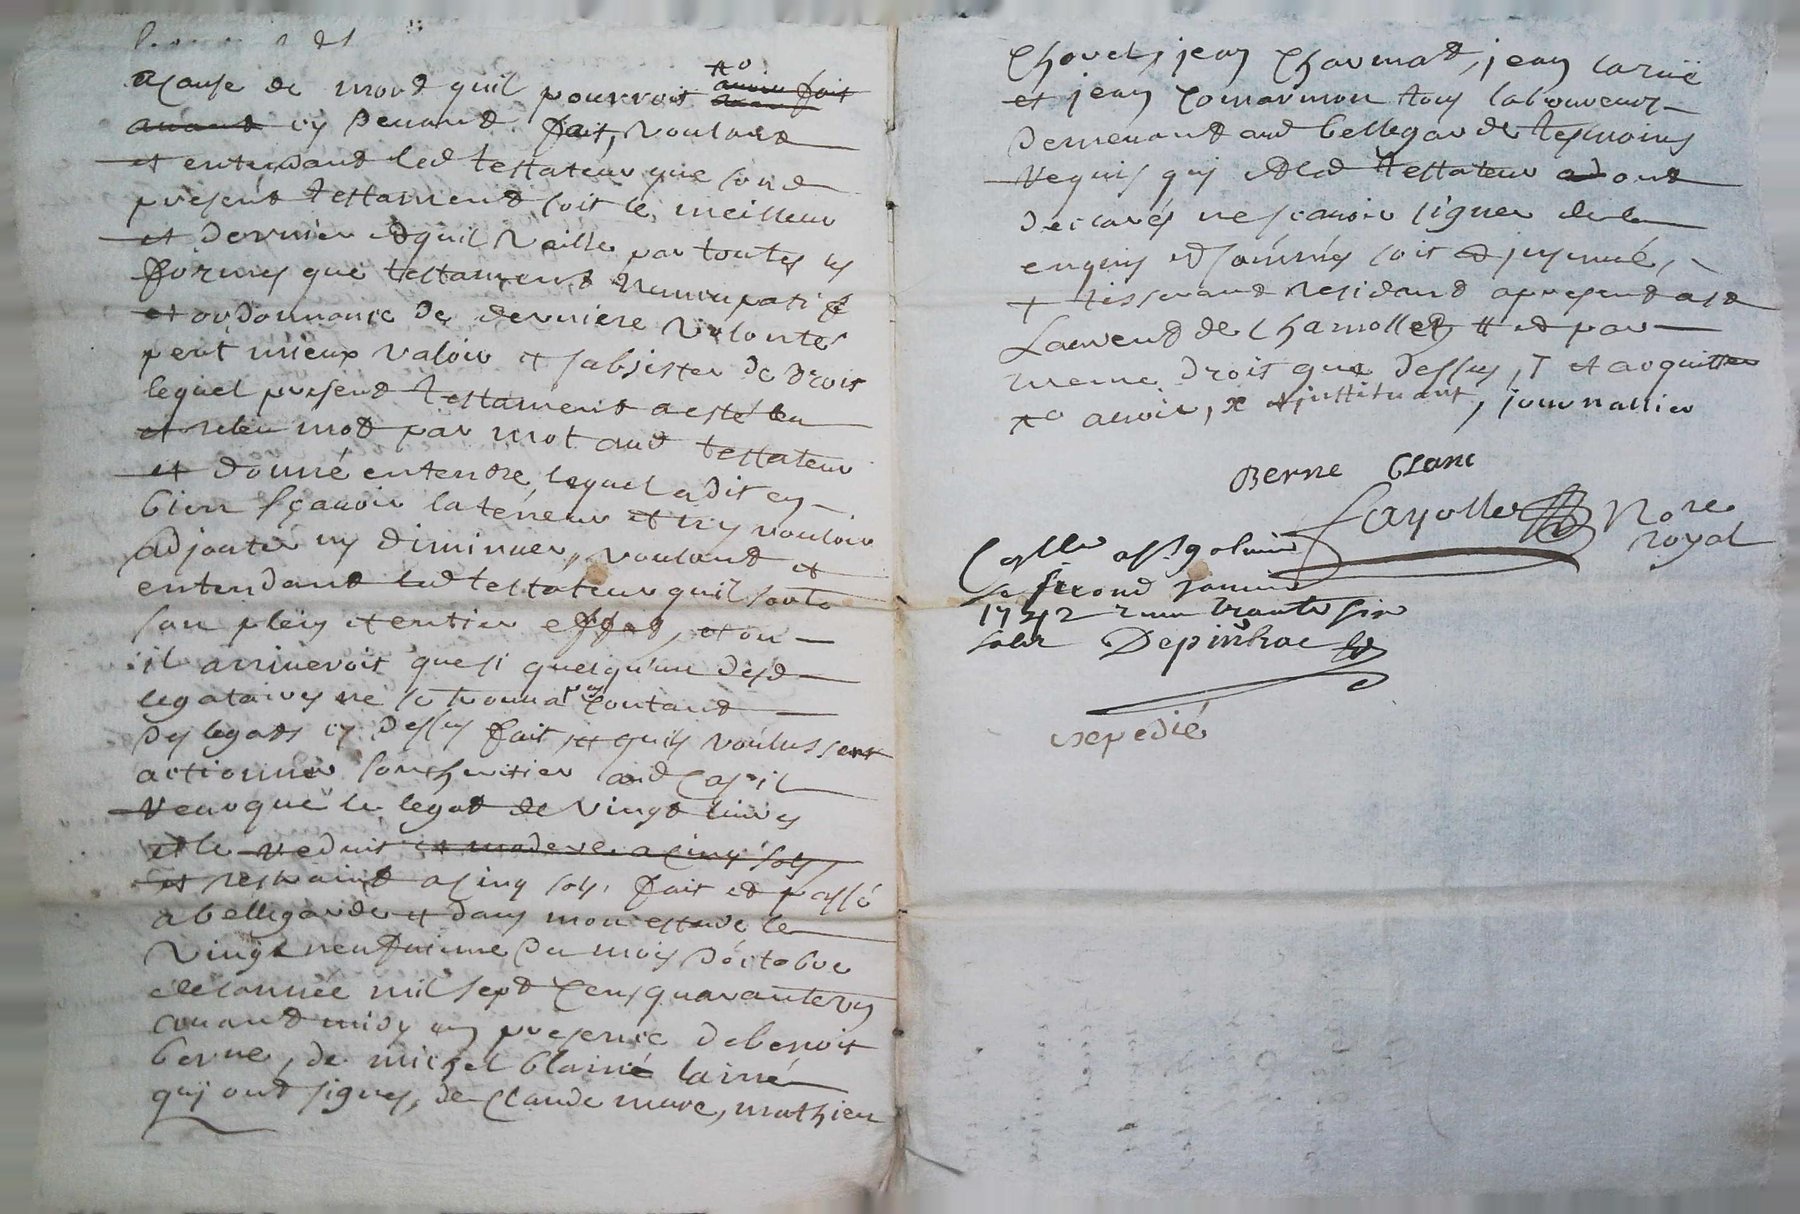 acause de mord quil pourroit
cy devand fait, voulant
et entendant led testateur que sond
present testament soit le meilleur
et dernier et quil vaille par toutes les
formes que testament nuncupatif
et ordonnance de derniere volonté
peut mieux valoir et subsister de droit
lequel present testament a esté leu
et releu mot par mot aud testateur
et donné entendre, lequel a dit en
bien sçavoir la teneur et ny vouloir
adjouter ny diminuer, voulant et
entendant led testateur quil sorte
son plein et entier effet, et ou
il arriveroit que si quelqu'un desd
legataires ne se trouvat pas contand
des legats cy dessus fait et quils voulussent
actionner son heritier aud cas il
revoque le legat de vingt livres
et le reduit et modere a cinq sols
et restraint a cinq sols, fait et passé
a bellegarde et dans mon estude le
vingt neufuieme du mois d'octobre
de lannée mil sept cens quarante un
avant midy en presence de benoit
berne, de michel blanc lainé
qui ont signés, de Claude mure, mathieu
Chovet, jean Charmat, jean larüe
et jean Comarmon tous laboureurs
demeurant aud bellegarde tesmoins
requis qui et led testateur ont
declarés ne sçavoir signer de ce
enquis et sommés soit insinué,
+ tisserand residant a present a St
Laurend de Chamosset # et par
meme droit que dessus, T et acquitter
xo avoir, x et instituant, journallier
Berne Blanc
Fayolle Nore
royal
Collé a St galmier
le second janvier
1742 reçu trante six
sols Depinhac
expedié